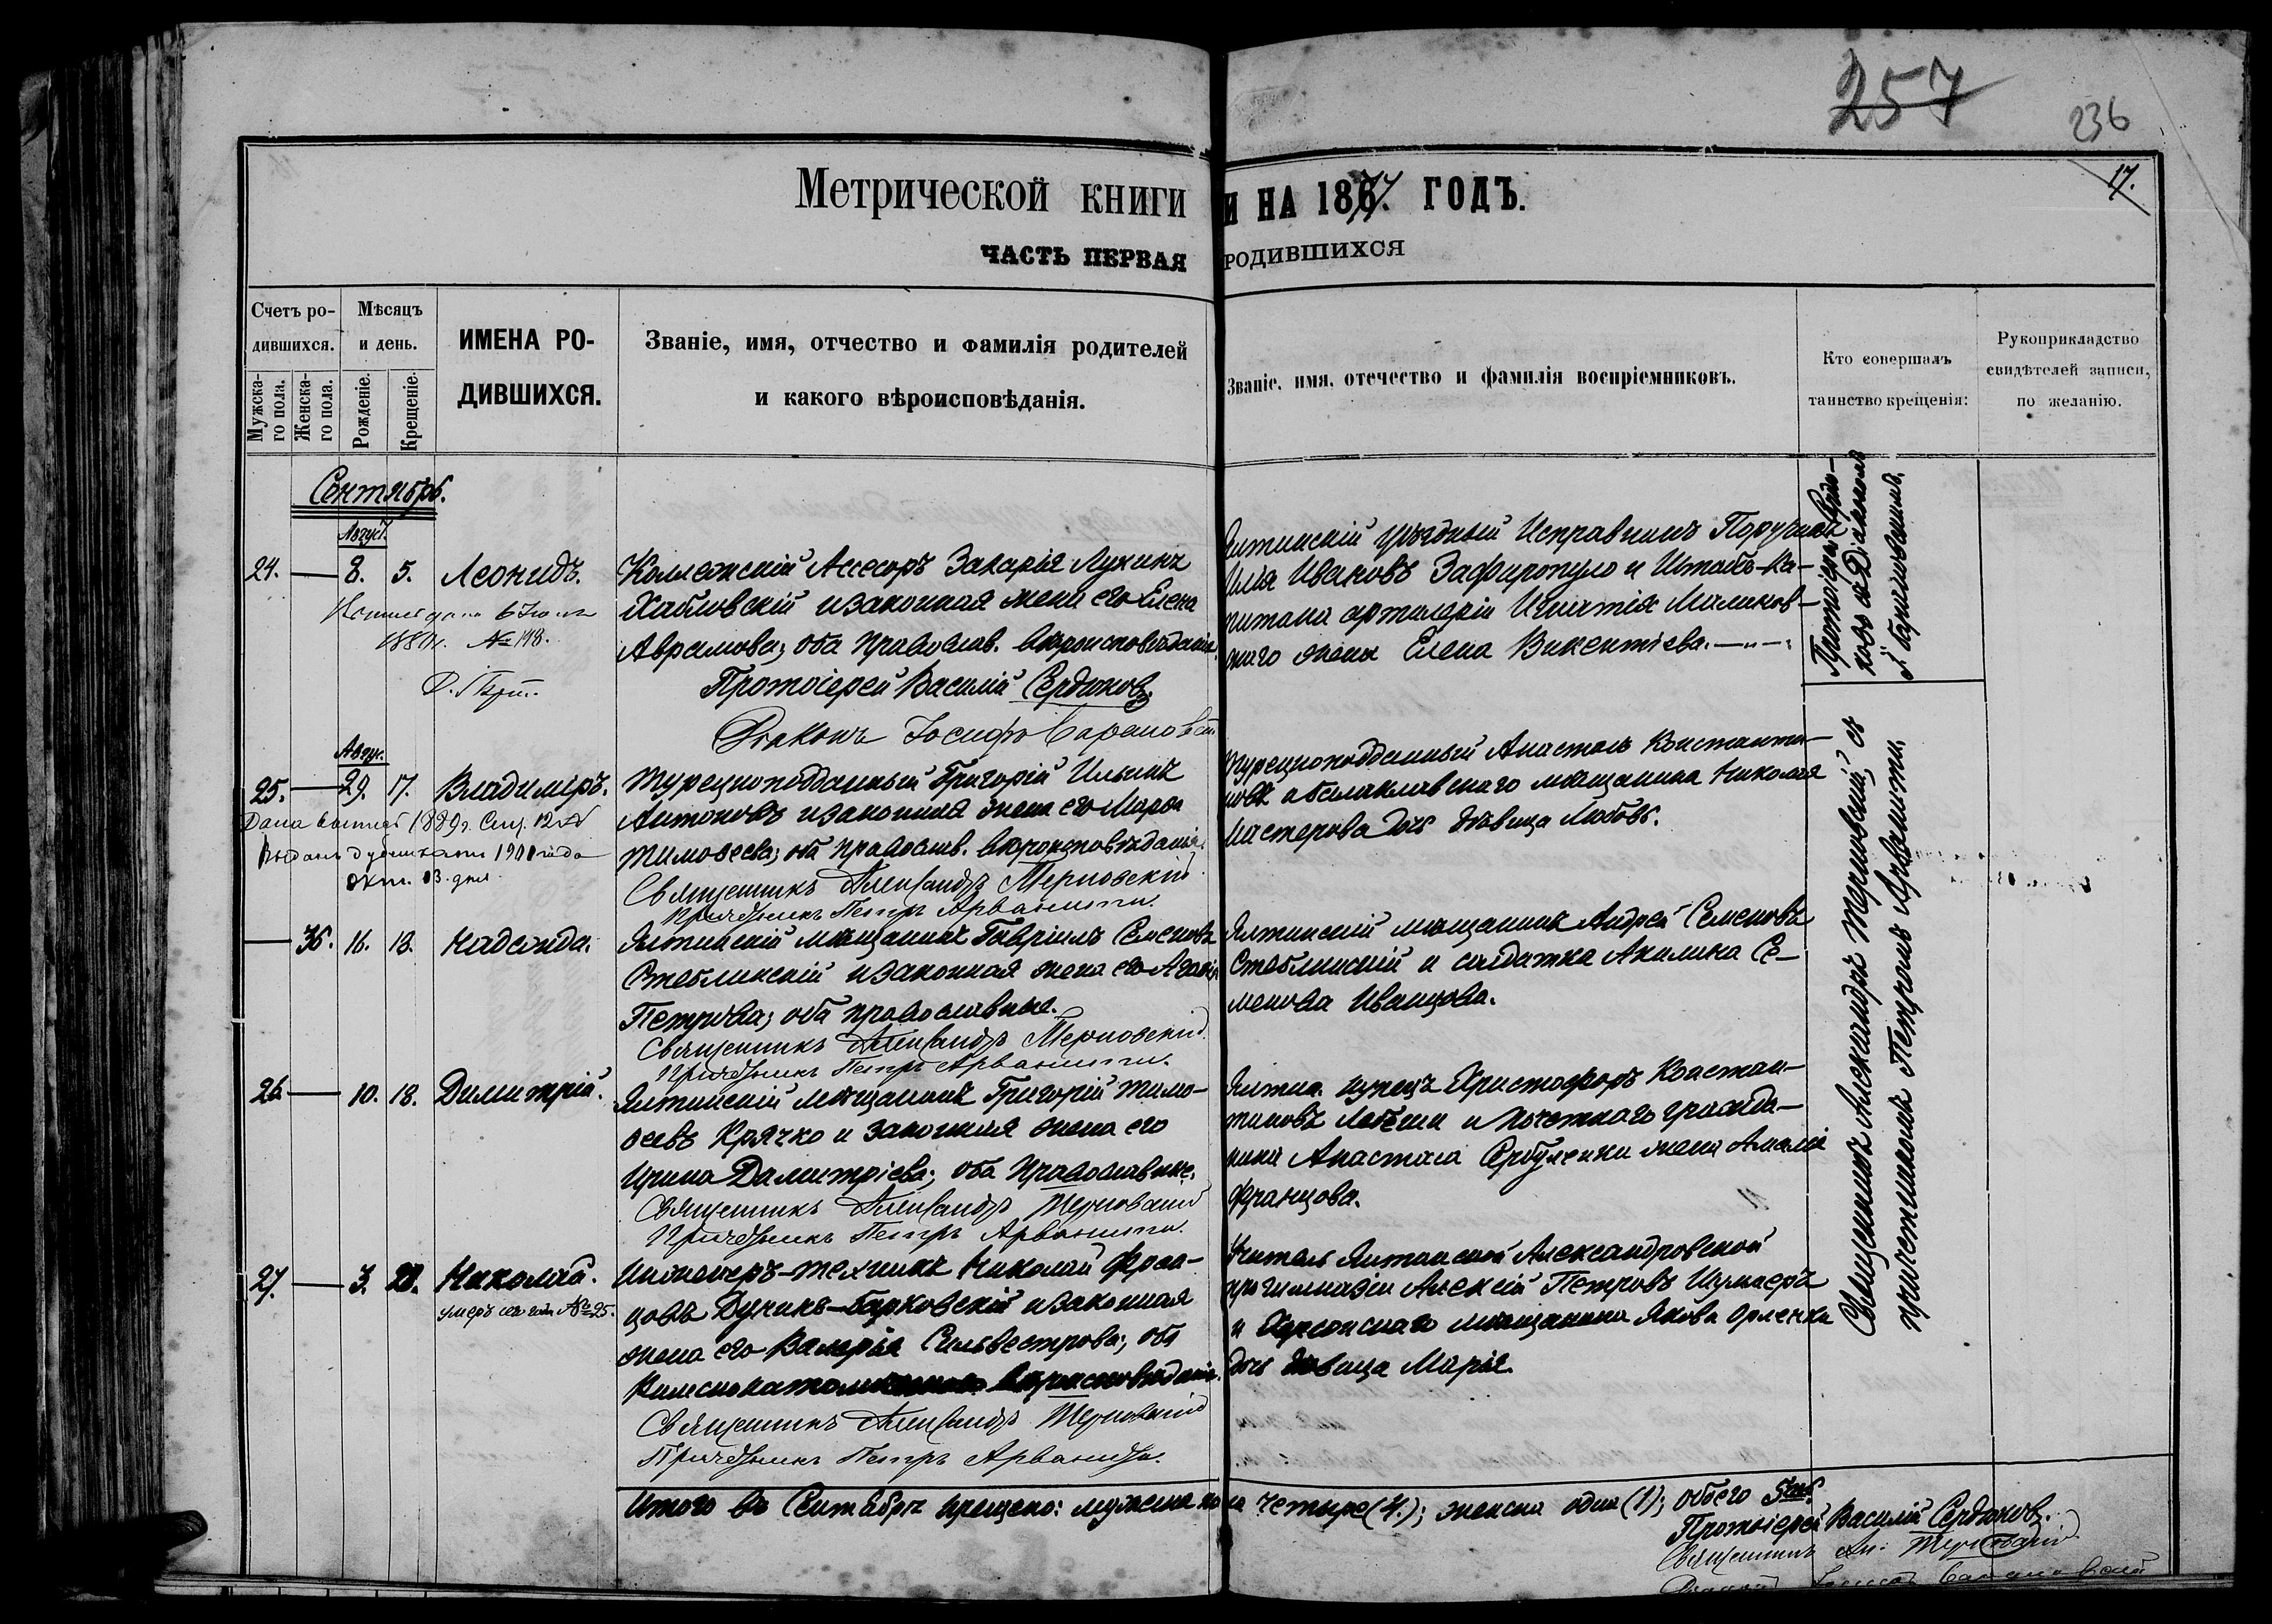 257
236
17.
Метрической книги
И НА 1877. ГОДЪ.
ЧАСТЬ ПЕРВАЯ
РОДИВШИХСЯ
Счетъ ро-
дившихся.
Мужска-
го пола.
Женска-
го пола.
Мѣсяцъ
и день.
Рожденіе.
Крещеніе.
ИМЕНА РО-
ДИВШИХСЯ.
Званіе, имя, отчество и фамилія родителей
и какого вѣроисповѣданія.
Званіе, имя, отечество и фамилія воспріемниковъ.
Кто совершалъ
таинство крещенія:
Рукоприкладство
свидѣтелей записи,
по желанію.
Сентябрь.
Август.
24. 8. 5. Леонидъ.
1881г. № 198.
Коллежскій Ассесоръ Захарія Лукинъ
Хабловскій и законная жена его Елена
Аврамова; оба православ. вѣроисповѣданія.
Протоіерей Василій Сердюковъ.
Діаконъ Іосифъ Барановскій
Ялтинскій уѣздный Исправникъ Поручикъ
Илія Ивановъ Зафиропуло и Штабъ-Ка-
питана артилеріи Игнатія Малинов-
скаго жена Елена Викентіева.
Протоіерей Сердю-
ковъ съ Діакономъ
І. Барановскимъ.
Авгус.
25. 29. 17. Владиміръ.
1889г. Сен. 12 д.
Выданъ дубликатъ 1901 года
окт. 13. дня
Турецкоподданный Григорій Ильинъ
Антоновъ и законная жена его Марѳа
Тимоѳеева; оба православ. вѣроисповѣданія.
Священникъ Александръ Терновскій
Причетникъ Петръ Арванити.
Турецкоподданный Анастасъ Константи-
новъ и балаклавскаго мѣщанина Николая
Мистерова дочь дѣвица Любовь.
36. 16. 18. Надежда.
Ялтинскій мѣщанинъ Гавріилъ Семеновъ
Стеблинскій и законная жена его Агафія
Петрова; оба православные.
Священникъ Александръ Терновскій.
Причетникъ Петръ Арванити.
Ялтинскій мѣщанинъ Андрей Семеновъ
Стеблинскій и солдатка Акилина Се-
менова Иванцова.
26. 10. 18. Димитрій.
Ялтинскій мѣщанинъ Григорій Тимо-
ѳеевъ Крячко и законная жена его
Ирина Димитріева; оба православные.
Священникъ Александръ Терновскій
Причетникъ Петръ Арванити.
Ялтин. купецъ Христофоръ Констан-
тиновъ и почетнаго гражда-
нина Анастаса жена Амалія
Францова.
27. 3. 28. Николай.
умеръ № 25.
Инженеръ-техникъ Николай Фран-
цовъ и законная
жена его Валерія Сильвестрова; оба
вѣроисповѣданія.
Священникъ Александръ Терновскій
Причетникъ Петръ Арванити.
Учитель Ялтинской Александровской
прогимназіи Алексій Петровъ
и Херсонскаго мѣщанина Якова Орленка
дочь дѣвица Марія.
Священникъ Александръ Терновскій съ
причетникомъ Петромъ Арванити.
Итого въ Сентябрѣ крещено: мужска пола четыре (4.); женска одна (1); обоего 5ть.
Протоіерей Василій Сердюковъ.
Священникъ Ал. Терновскій
Діаконъ Іосифъ Барановскій